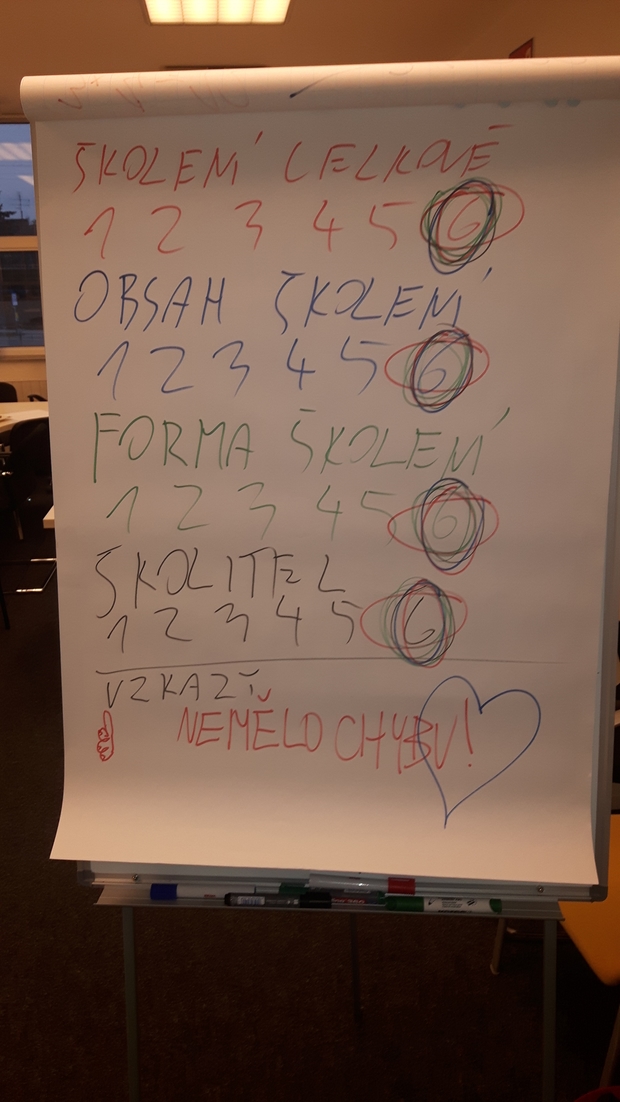 ŠKOLENÍ CELKOVĚ
1 2 3 4 5 6
OBSAH ŠKOLENÍ
1 2 3 4 5 6
FORMA ŠKOLENÍ
1 2 3 4 5 6
ŠKOLITEL
1 2 3 4 5 6
VZKAZŤ
NEMĚLO CHYBU!